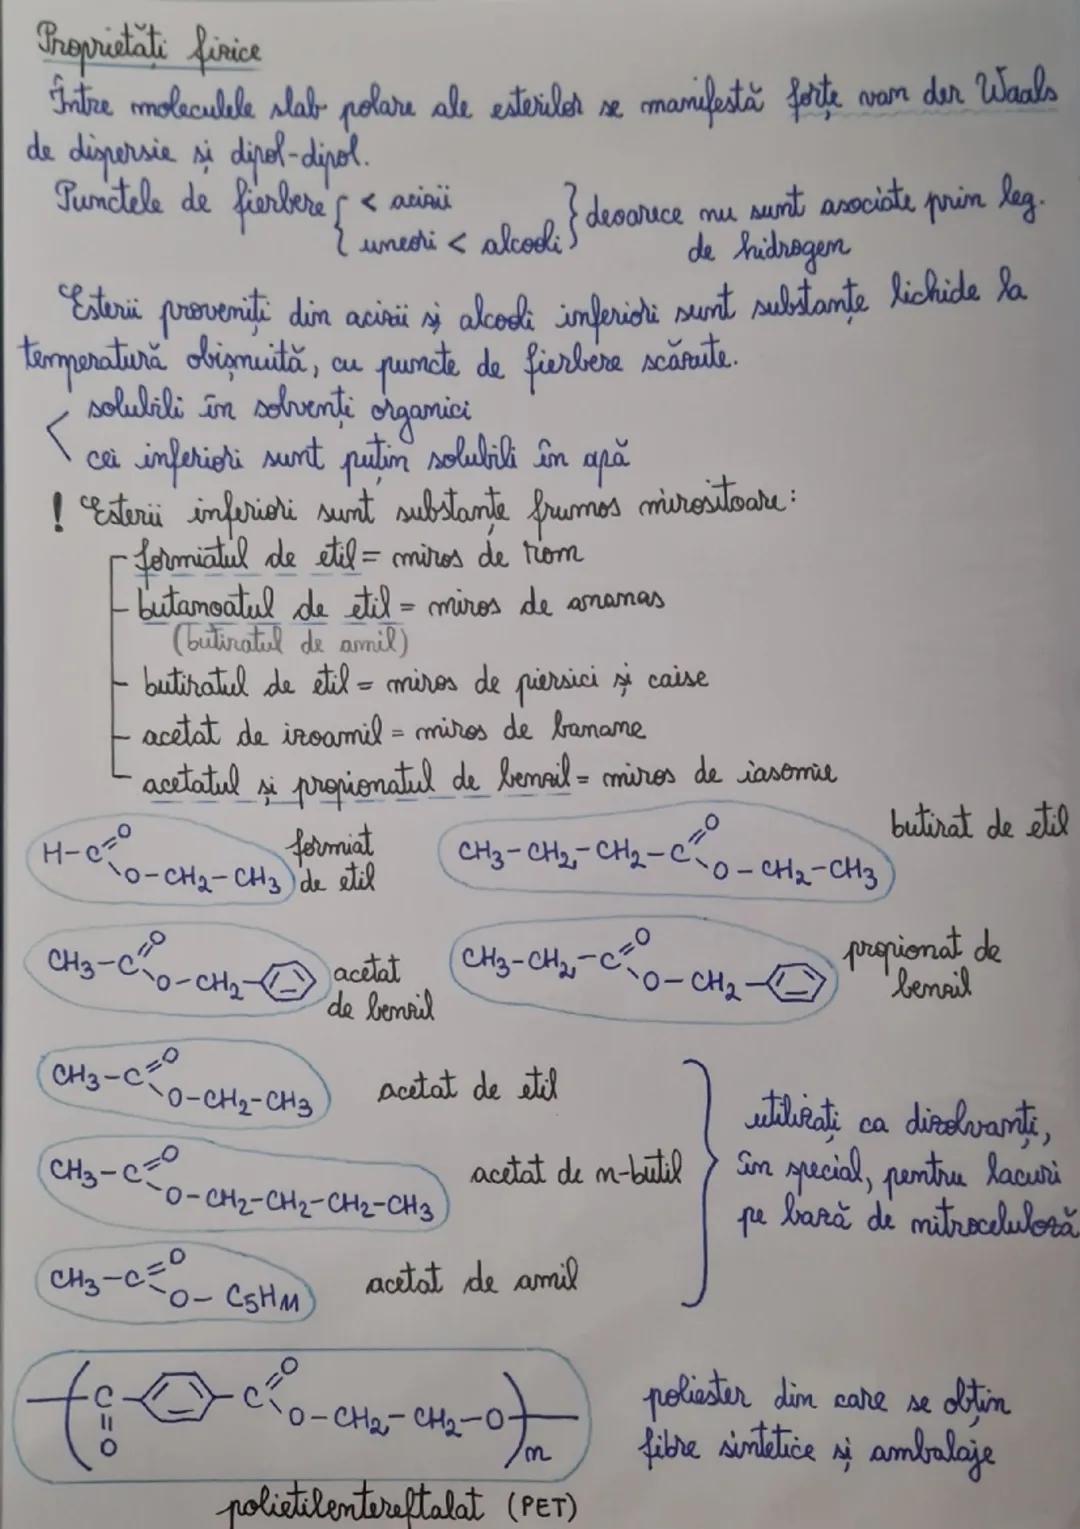 Proprietăți fizice
Între moleculele slab polare ale esterilor se manifestă forțe van der Waals
de dispersie și dipol-dipol.
Punctele de fierbere { < acizii } deoarece nu sunt asociate prin leg.
{ uneori < alcooli } de hidrogen
Esterii proveniți din acizii și alcooli inferiori sunt substanțe lichide la
temperatură obișnuită, cu puncte de fierbere scăzute.
solubili în solvenți organici
cei inferiori sunt puțin solubili în apă
! Esterii inferiori sunt substanțe frumos mirositoare:
- formiatul de etil = miros de rom
- butanoatul de etil = miros de ananas
(butiratul de amil)
- butiratul de etil = miros de piersici și caise
- acetat de izoamil = miros de banane
- acetatul și propionatul de benzil = miros de iasomie
H-C=O
O-CH2-CH3
formiat
de etil
CH3-CH2-CH2-C=O
O-CH2-CH3
butirat de etil
CH3-C=O
O-CH2-
acetat
de benzil
CH3-CH2-C=O
O-CH2-
propionat de
benzil
CH3-C=O
O-CH2-CH3
acetat de etil
CH3-C=O
O-CH2-CH2-CH2-CH3
acetat de n-butil
CH3-C=O
O-C5H11
acetat de amil
utilizați ca dizolvanți,
în special, pentru lacuri
pe bază de nitroceluloză
(C - C=O
O O-CH2-CH2-O)n
poliester din care se obțin
fibre sintetice și ambalaje
polietilentereftalat (PET)